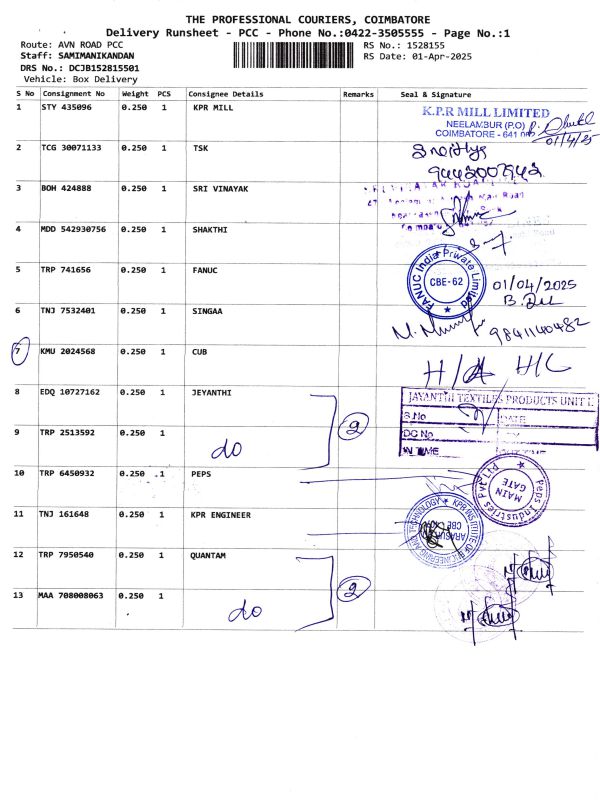 THE PROFESSIONAL COURIERS, COIMBATORE
Delivery Runsheet - PCC - Phone No.:0422-3505555 - Page No.:1
Route: AVN ROAD PCC
RS No.: 1528155
Staff: SAMIMANIKANDAN
RS Date: 01-Apr-2025
DRS No.: DCJB152815501
Vehicle: Box Delivery
S No Consignment No Weight PCS Consignee Details Remarks Seal & Signature
1 STY 435096 0.250 1 KPR MILL
K.P.R MILL LIMITED
NEELAMBUR (P.O)
COIMBATORE - 641
01/4/25
2 TCG 30071133 0.250 1 TSK
3 BOH 424888 0.250 1 SRI VINAYAK
4 MDD 542930756 0.250 1 SHAKTHI
5 TRP 741656 0.250 1 FANUC
FANUC India Private Limited
CBE-62
01/04/2025
6 TNJ 7532401 0.250 1 SINGAA
9841140482
7 KMU 2024568 0.250 1 CUB
H/C
8 EDQ 10727162 0.250 1 JEYANTHI
JAYANTHI TEXTILES PRODUCTS UNIT I
S.No DATE
DC No
IN TIME
2
9 TRP 2513592 0.250 1
do
10 TRP 6450932 0.250 1 PEPS
Peps Industries Pvt Ltd
MAIN GATE
11 TNJ 161648 0.250 1 KPR ENGINEER
KPR INSTITUTE OF ENGINEERING AND TECHNOLOGY
12 TRP 7950540 0.250 1 QUANTAM
2
13 MAA 708008063 0.250 1
do